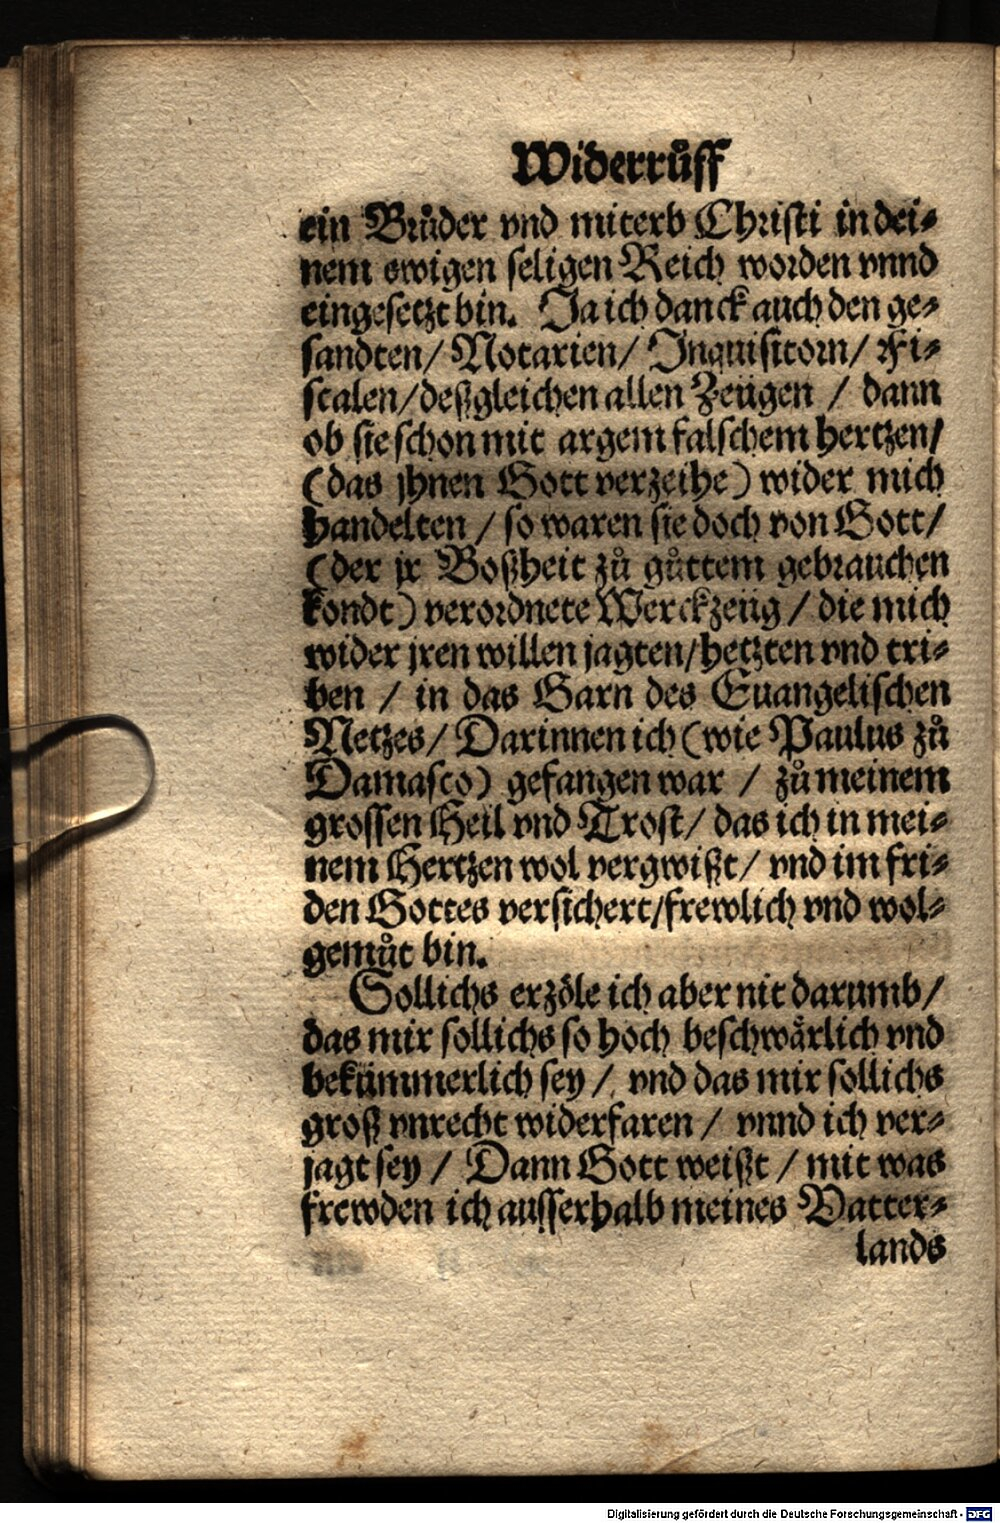 Widerrůff
ein Brůder vnd miterb Christi in dei-
nem ewigen seligen Reich worden vnnd
eingesetzt bin. Ja ich danck auch den ge-
sandten/ Notarien/ Inquisitorn/ Fi-
scalen/ deßgleichen allen Zeügen / dann
ob sie schon mit argem falschem hertzen/
(das jhnen Gott verzeihe) wider mich
handelten / so waren sie doch von Gott/
(der jr Boßheit zů gůttem gebrauchen
kondt) verordnete Werckzeüg / die mich
wider jren willen jagten/ hetzten vnd tri-
ben / in das Garn des Euangelischen
Netzes/ Darinnen ich (wie Paulus zů
Damasco) gefangen war / zů meinem
grossen Heil vnd Trost/ das ich in mei-
nem Hertzen wol vergwißt/ vnd im fri-
den Gottes versichert/ frewlich vnd wol-
gemůt bin.
Sollichs erzöle ich aber nit darumb/
das mir sollichs so hoch beschwärlich vnd
bekümmerlich sey / vnd das mir sollichs
groß vnrecht widerfaren / vnnd ich ver-
jagt sey / Dann Gott weißt / mit was
frewden ich ausserhalb meines Vatter-
lands
Digitalisierung gefördert durch die Deutsche Forschungsgemeinschaft - DFG